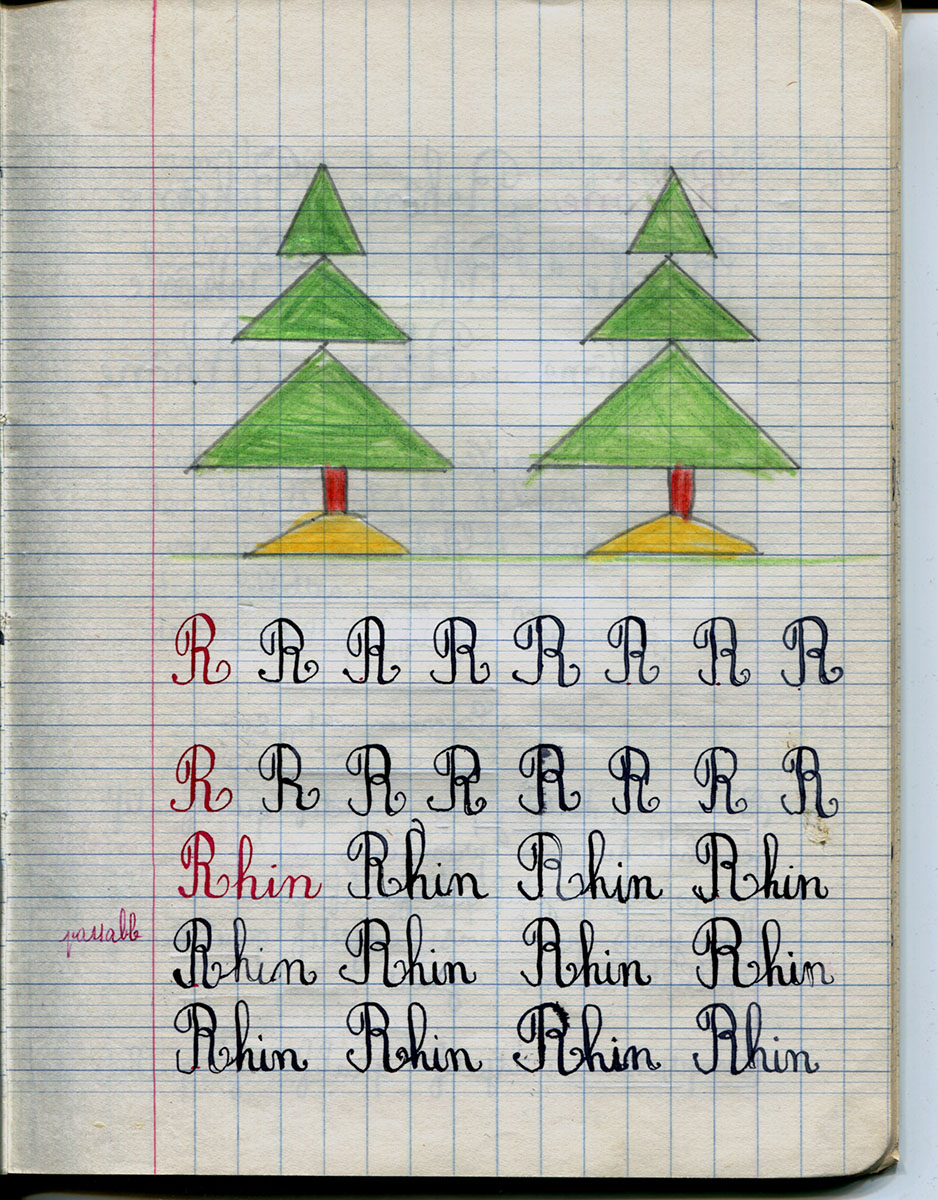 R R R R R R R R
R R R R R R R R
Rhin Rhin Rhin Rhin
passable
Rhin Rhin Rhin Rhin
Rhin Rhin Rhin Rhin